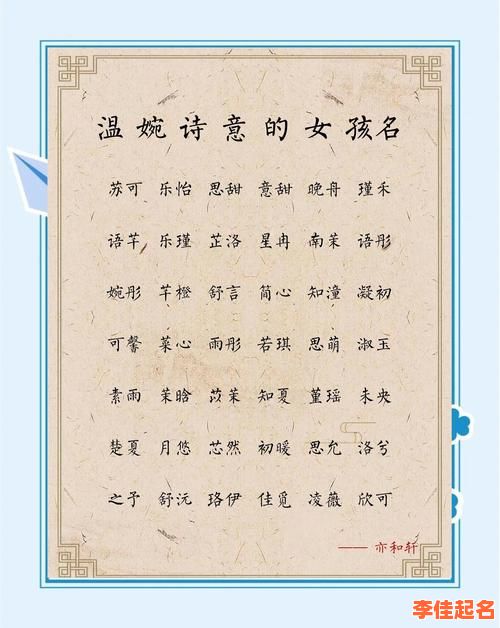 温婉诗意的女孩名
苏可 乐怡 思甜 意甜 晚舟 瑾禾
语芊 乐瑾 芷洛 星冉 南茉 语彤
婉彤 芊橙 舒言 简心 知潼 凝初
可馨 菜心 雨彤 若琪 思萌 淑玉
素雨 茉晗 苡茉 知夏 董瑶 未央
楚夏 月悠 芯然 初暖 思允 洛兮
之予 舒沅 珞伊 佳觅 凌薇 欣可
—— 亦和轩
李佳起名